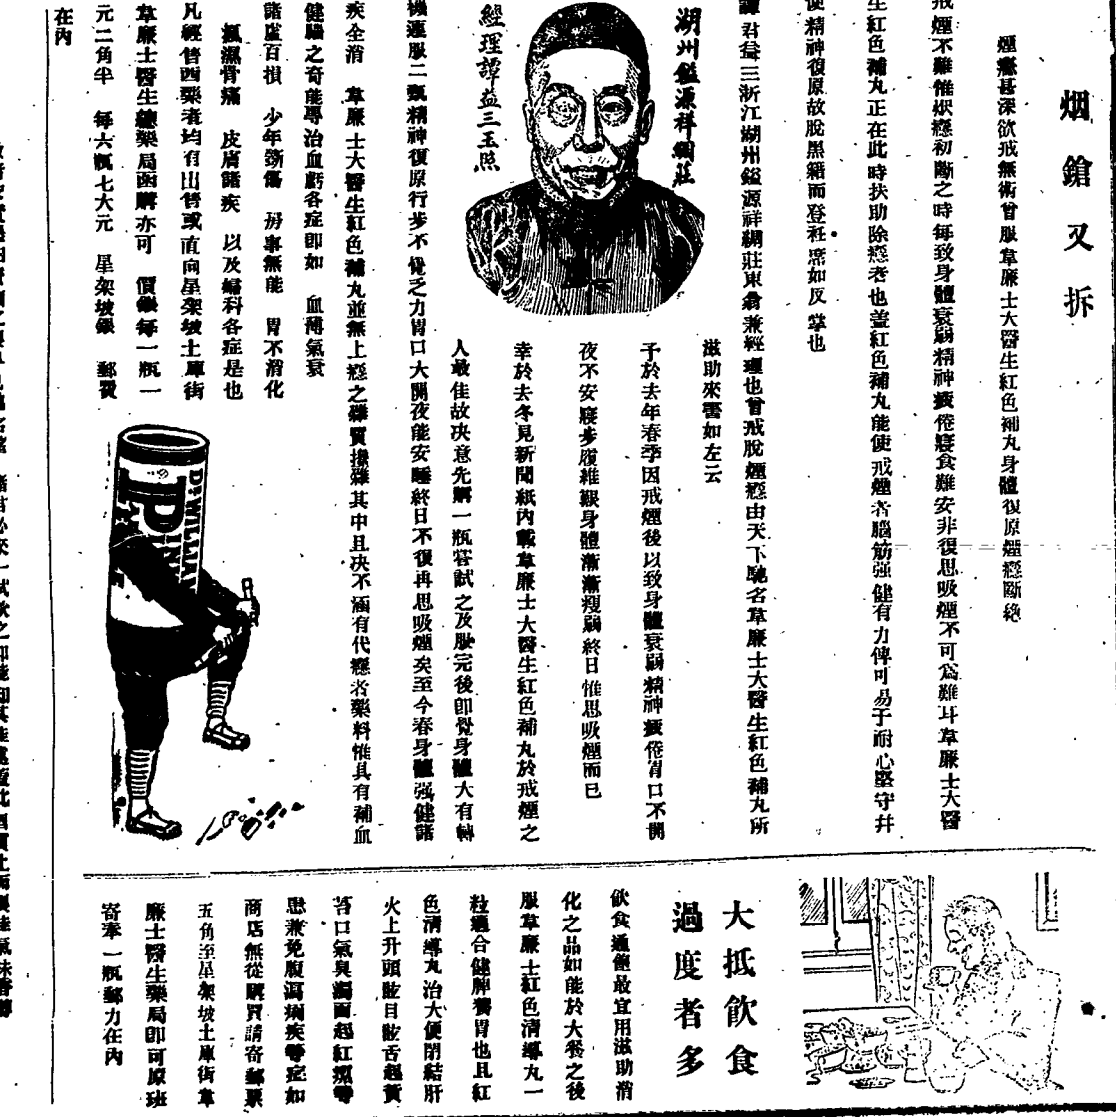 烟鎗又拆
煙癮甚深欲戒無術曾服韋廉士大醫生紅色補丸身體復原煙癮斷絶
戒煙不難惟烟癮初斷之時每致身體衰弱精神疲倦寢食難安非復思吸煙不可爲難耳韋廉士大醫
生紅色補丸正在此時扶助除癮者也蓋紅色補丸能使戒煙者腦筋强健有力俾可易于耐心堅守并
使精神復原故脫黑籍而登衽席如反掌也
譚君益三浙江湖州鎰源祥綢莊東翕兼經理也曾戒脫煙癮由天下馳名韋廉士大醫生紅色補丸所
滋助來書如左云
湖州鎰源祥綢莊
經理譚益三玉照
予於去年春季因戒煙後以致身體衰弱精神疲倦胃口不開
夜不安寢步履維艱身體漸漸瘦弱終日惟思吸煙而已
幸於去冬見新聞紙內載韋廉士大醫生紅色補丸於戒煙之
人最佳故决意先購一瓶嘗試之及服完後卽覺身體大有轉
機連服二瓶精神復原行步不覺乏力胃口大開夜能安睡終日不復再思吸煙矣至今春身體强健諸
疾全消 韋廉士大醫生紅色補丸並無上癮之雜質攙雜其中且决不涵有代癮者藥料惟具有補血
健腦之奇能專治血虧各症卽如 血薄氣衰
諸虛百損 少年斵傷 房事無能 胃不消化
瘋濕骨痛 皮膚諸疾 以及婦科各症是也
凡經售西藥者均有出售或直向星架坡土庫街
韋廉士醫生總藥局函購亦可 價銀每一瓶一
元二角半 每六瓶七大元 星架坡銀 郵費
在內
DR WILLIAM
PINK
大抵飲食
過度者多
飲食過飽最宜用滋助消
化之品如能於大餐之後
服韋廉士紅色清導丸一
粒適合健脾養胃也且紅
色清導丸治大便閉結肝
火上升頭眩目眩舌起黃
苔口氣臭濁面起紅瘰等
患兼免腹瀉痢疾等症如
商店無從購買請寄郵票
五角至星架坡土庫街韋
廉士醫生藥局卽可原班
寄奉一瓶郵力在內